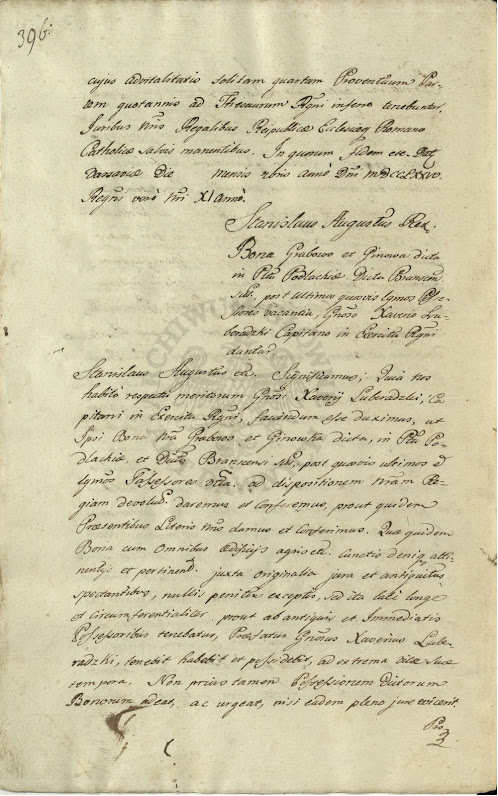 396.
cujus advitalitatis solitam quartam Proventuum Par-
tem quotannis ad Thesaurum Regni inferre tenebuntur.
Juribus nris Regalibus Reipublicæ Ecclesiæq Romano
Catholicæ salvis manentibus. In quorum fidem etc. Dat
Varsaviæ Die mensis anno Dni MDCCLXXV.
Regni vero nri XI anno.
Stanislaus Augustus Rex.
Bona Grabowo et Ginowa dicta
in Pltu Podlachiæ Dictu Bransen
post ultimos quosvis lgmos Posse-
ssores vacantia, Gnoso Xaverio Lu-
beradzki Capitano in Exercitu Regni
dantur.
Stanislaus Augustus etc. Significamus; Quia nos
habito respectu meritorum Gnosi Xaverij Luberadzki, Ca-
pitani in Exercitu Regni, faciendum esse duximus, ut
Ipsi Bona nra Grabowo et Ginowka dicta, in Pltu Po-
dlachiæ, et Dictu Bransensi post quosvis ultimos
lgmos Possessores ad dispositionem nram Re-
giam devoluta daremus et conferemus, prout quidem
Præsentibus Literis nris damus et conferimus. Quæ quidem
Bona cum Omnibus ædificijs agris etc. cunctis deniq atti-
nentijs et pertinent. juxta originalia jura et antiquitus
spectantibus, nullis penitus exceptis, sed ita late longe
et circumferentialiter, prout ab antiquis et Immediatis
Possessoribus tenebatur, Præfatus Gnosus Xaverius Lube-
radzki, tenebit habebit et possidebit, ad extrema vitæ suæ
tempora. Non prius tamen Possessionem dictorum
Bonorum adeat, ac urgeat, nisi eadem pleno jure
Pro